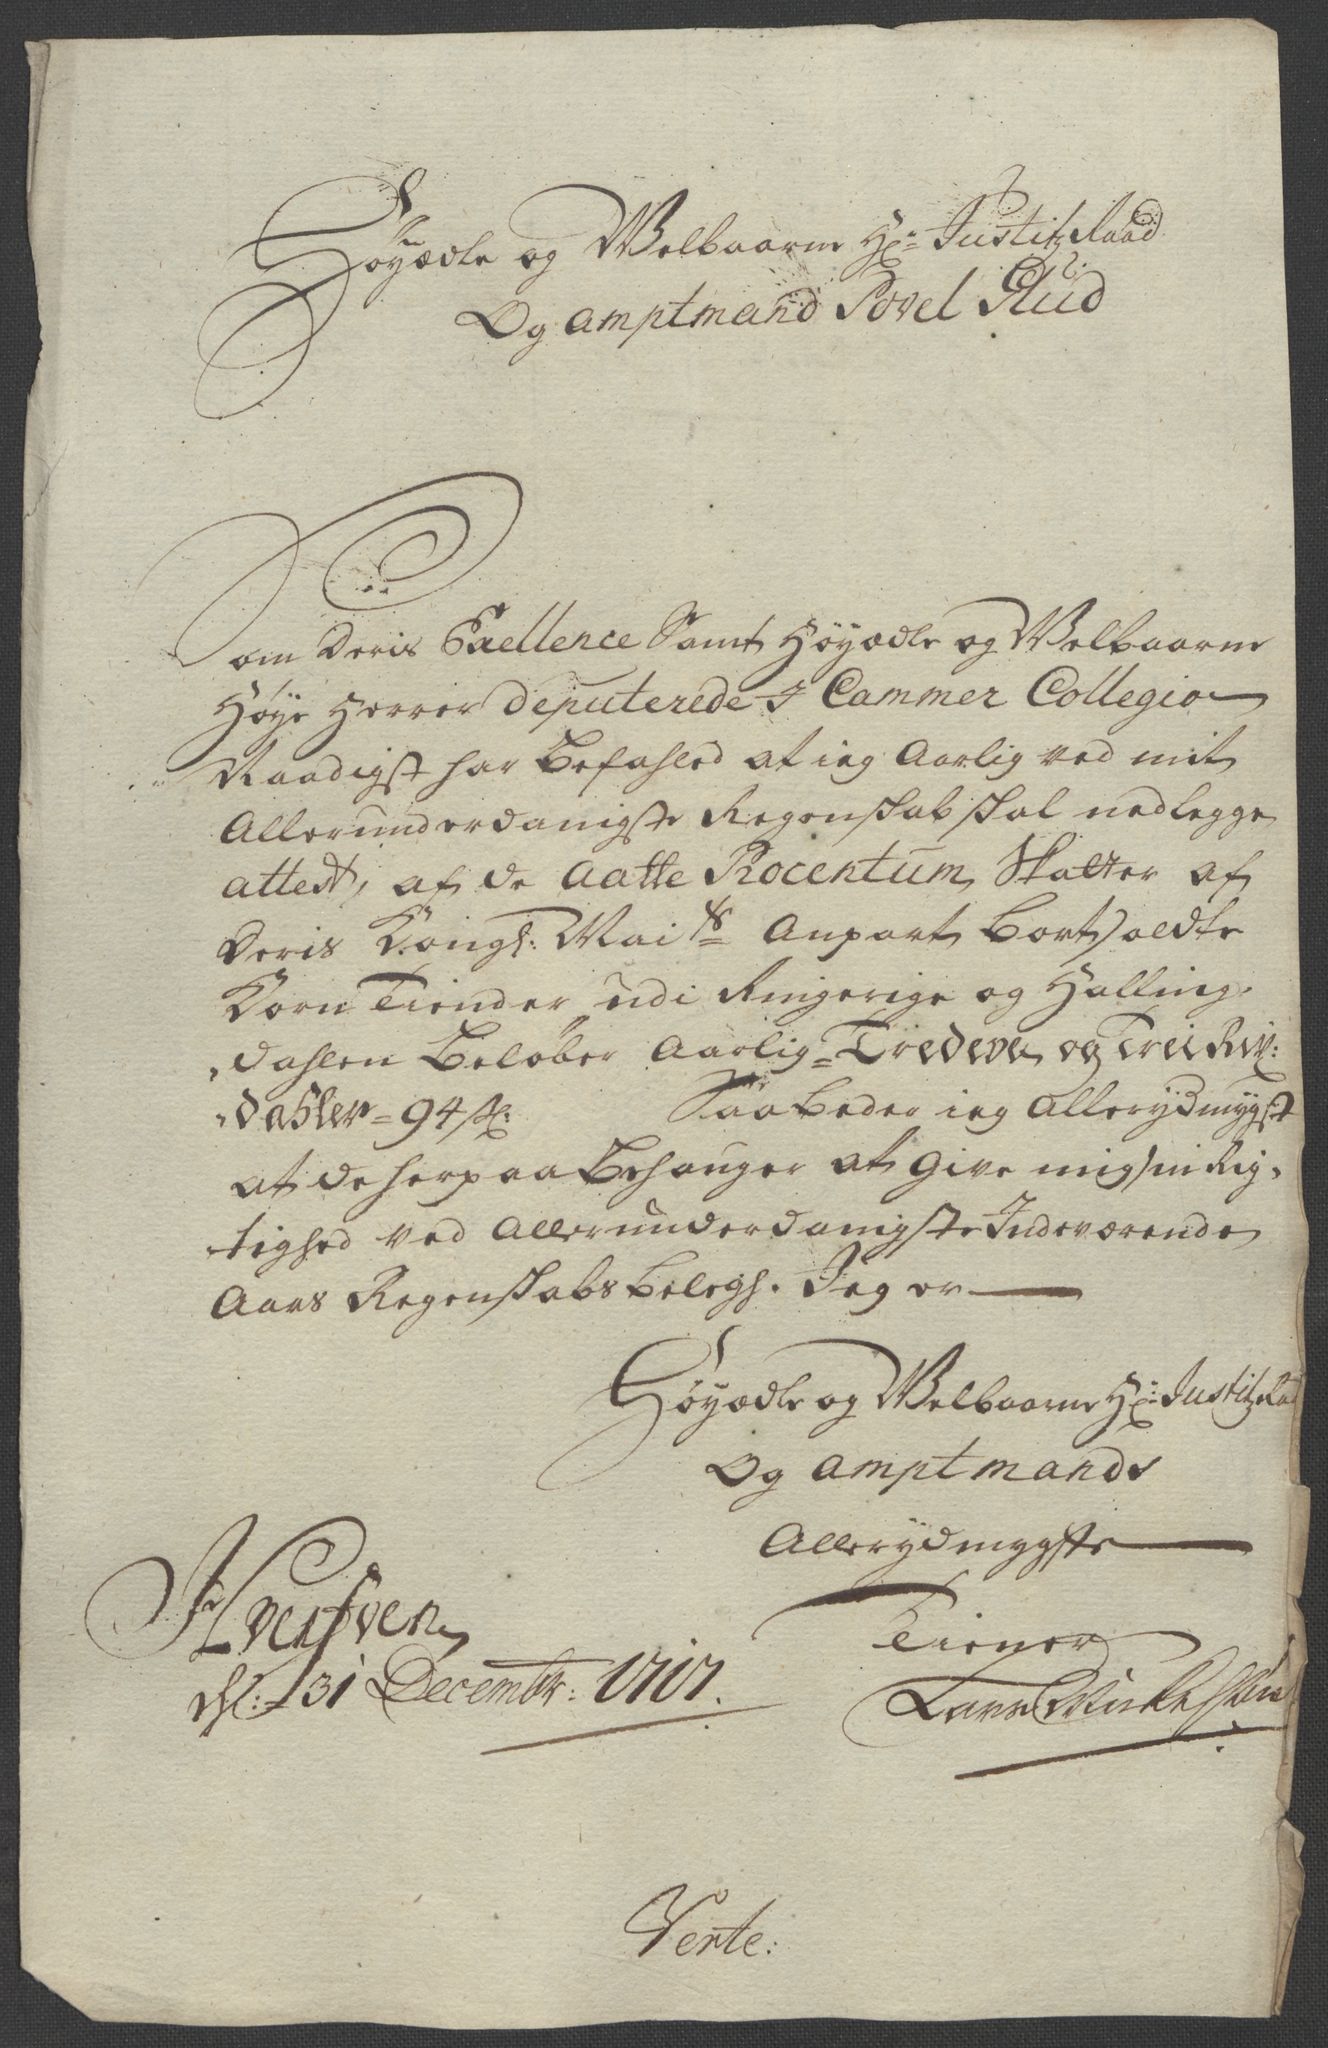 Høyædle og Welbaarne Hr: Justitz Raad
Og amptmand Povel Glud
Som Deris Exellence Samt Høyædle og Welbaarne
Høye Herrer deputerede I Cammer Collegio
Naadigst har Befahled at ieg Aarlig ved mit
Allerunderdanigste Regenskab skal nedlegge
attest, af de Aatte Procentum Skatter af
Deris Kongl: Maits Anpart Bortsoldte
Korn Tiender udi Ringerige og Halling,
,dahlen Beløber Aarlig = Tredeve og Trei Rix:
,dahler = 94 s:
Saa beder ieg Allerydmygst
at de herpaa Behauger at Give mig sin Rig,
,tighed ved Allerunderdanigste Indeværende
Aars Regenskabs Belegh. Jeg er
Høyædle og Welbaarne Hr: Justitz Raa
Og amptmands
Allerydmygste
Tiener
Hversven
dh: 31 Decembr: 1717.
Verte: